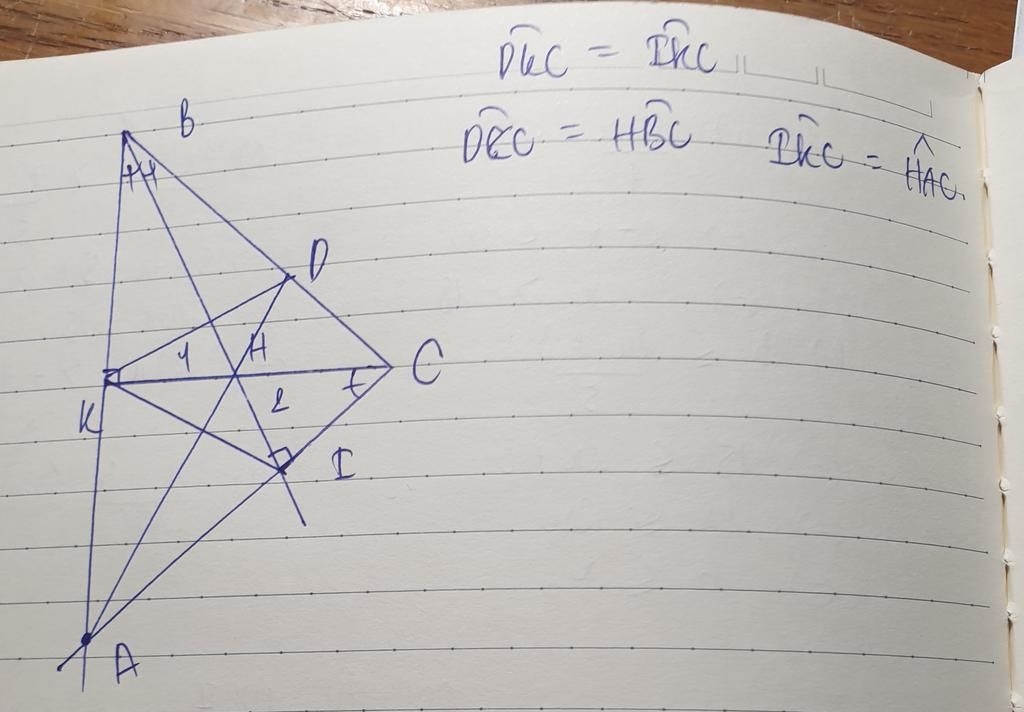 DKC = IKC
DKC = HBC IKC = HAC.
B
D
1 H
C
K 2
I
A